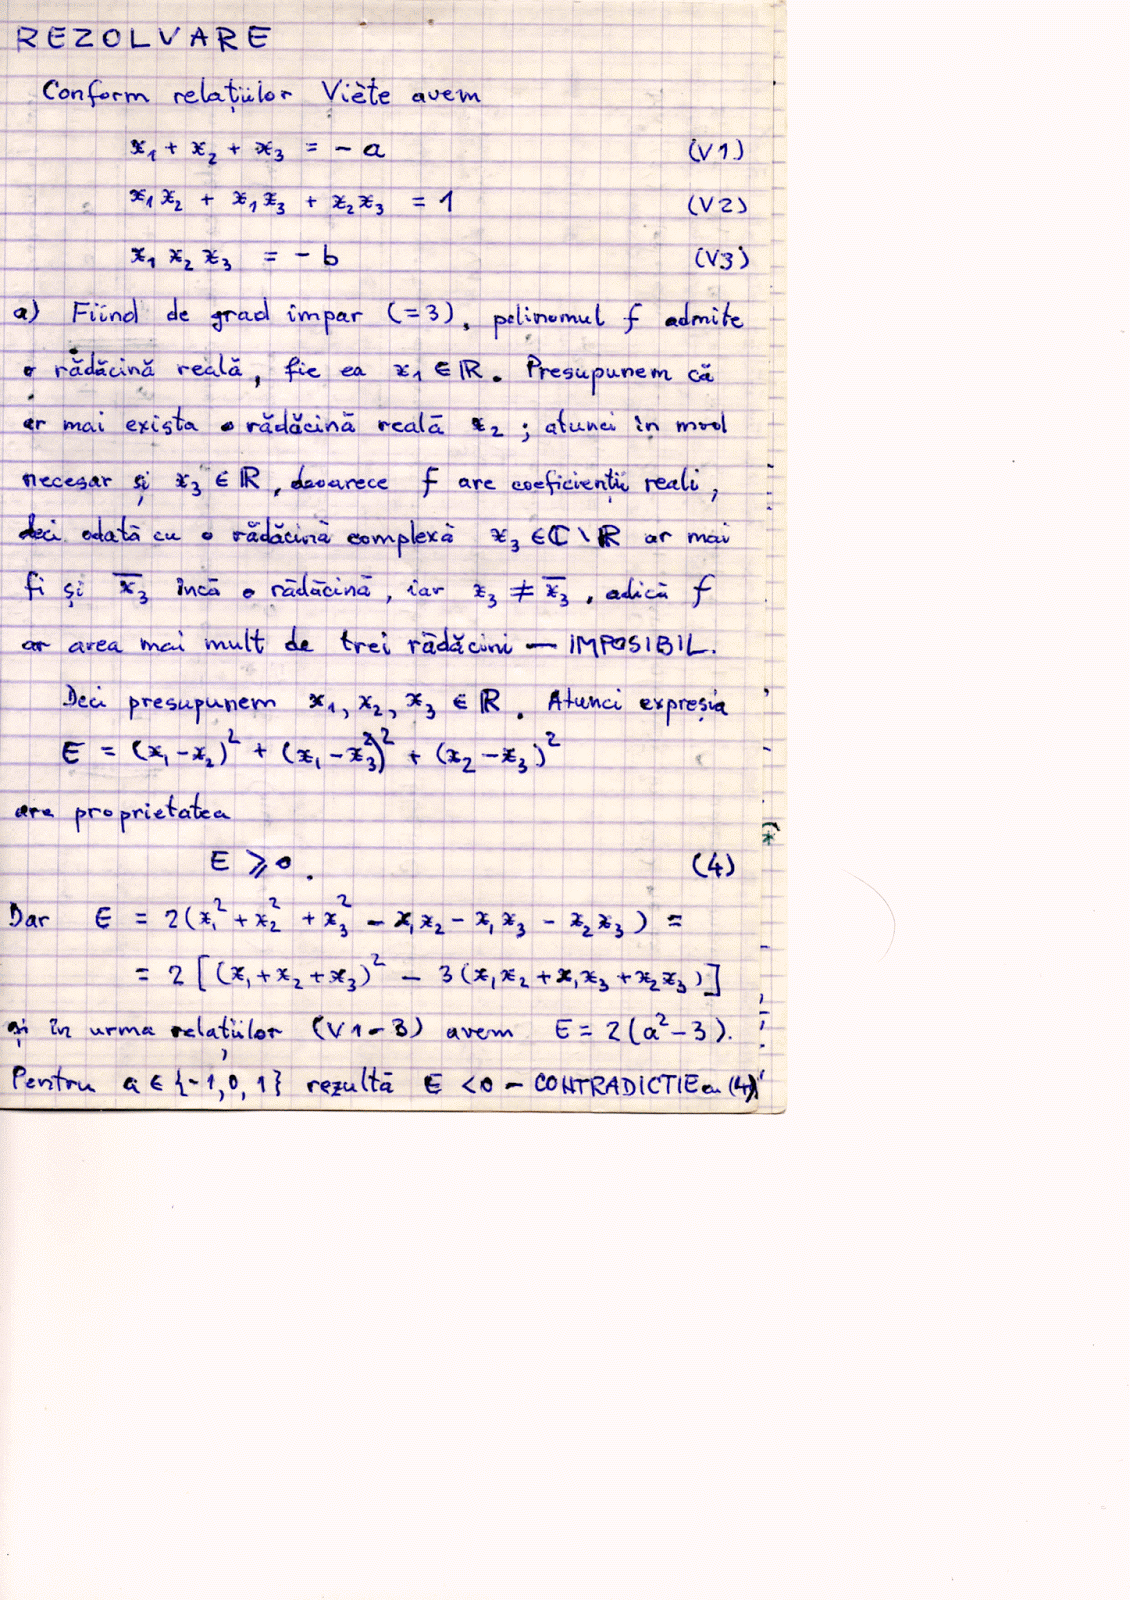 REZOLVARE
Conform relațiilor Viète avem
x₁ + x₂ + x₃ = - a (V1)
x₁x₂ + x₁x₃ + x₂x₃ = 1 (V2)
x₁ x₂ x₃ = - b (V3)
a) Fiind de grad impar (=3), polinomul f admite
o rădăcină reală, fie ea x₁ ∈ ℝ. Presupunem că
ar mai exista o rădăcină reală x₂ ; atunci în mod
necesar și x₃ ∈ ℝ, deoarece f are coeficienții reali,
deci odată cu o rădăcină complexă x₃ ∈ ℂ \ ℝ ar mai
fi și x̅₃ încă o rădăcină, iar x₃ ≠ x̅₃, adică f
ar area mai mult de trei rădăcini — IMPOSIBIL.
Deci presupunem x₁, x₂, x₃ ∈ ℝ. Atunci expresia
E = (x₁-x₂)² + (x₁-x₃)² + (x₂-x₃)²
are proprietatea
E ⩾ 0. (4)
Dar E = 2(x₁² + x₂² + x₃² - x₁x₂ - x₁x₃ - x₂x₃) =
= 2[(x₁+x₂+x₃)² - 3(x₁x₂+x₁x₃+x₂x₃)]
și în urma relațiilor (V1-3) avem E = 2(a²-3).
Pentru a ∈ {-1,0,1} rezultă E < 0 - CONTRADICTIE cu (4)